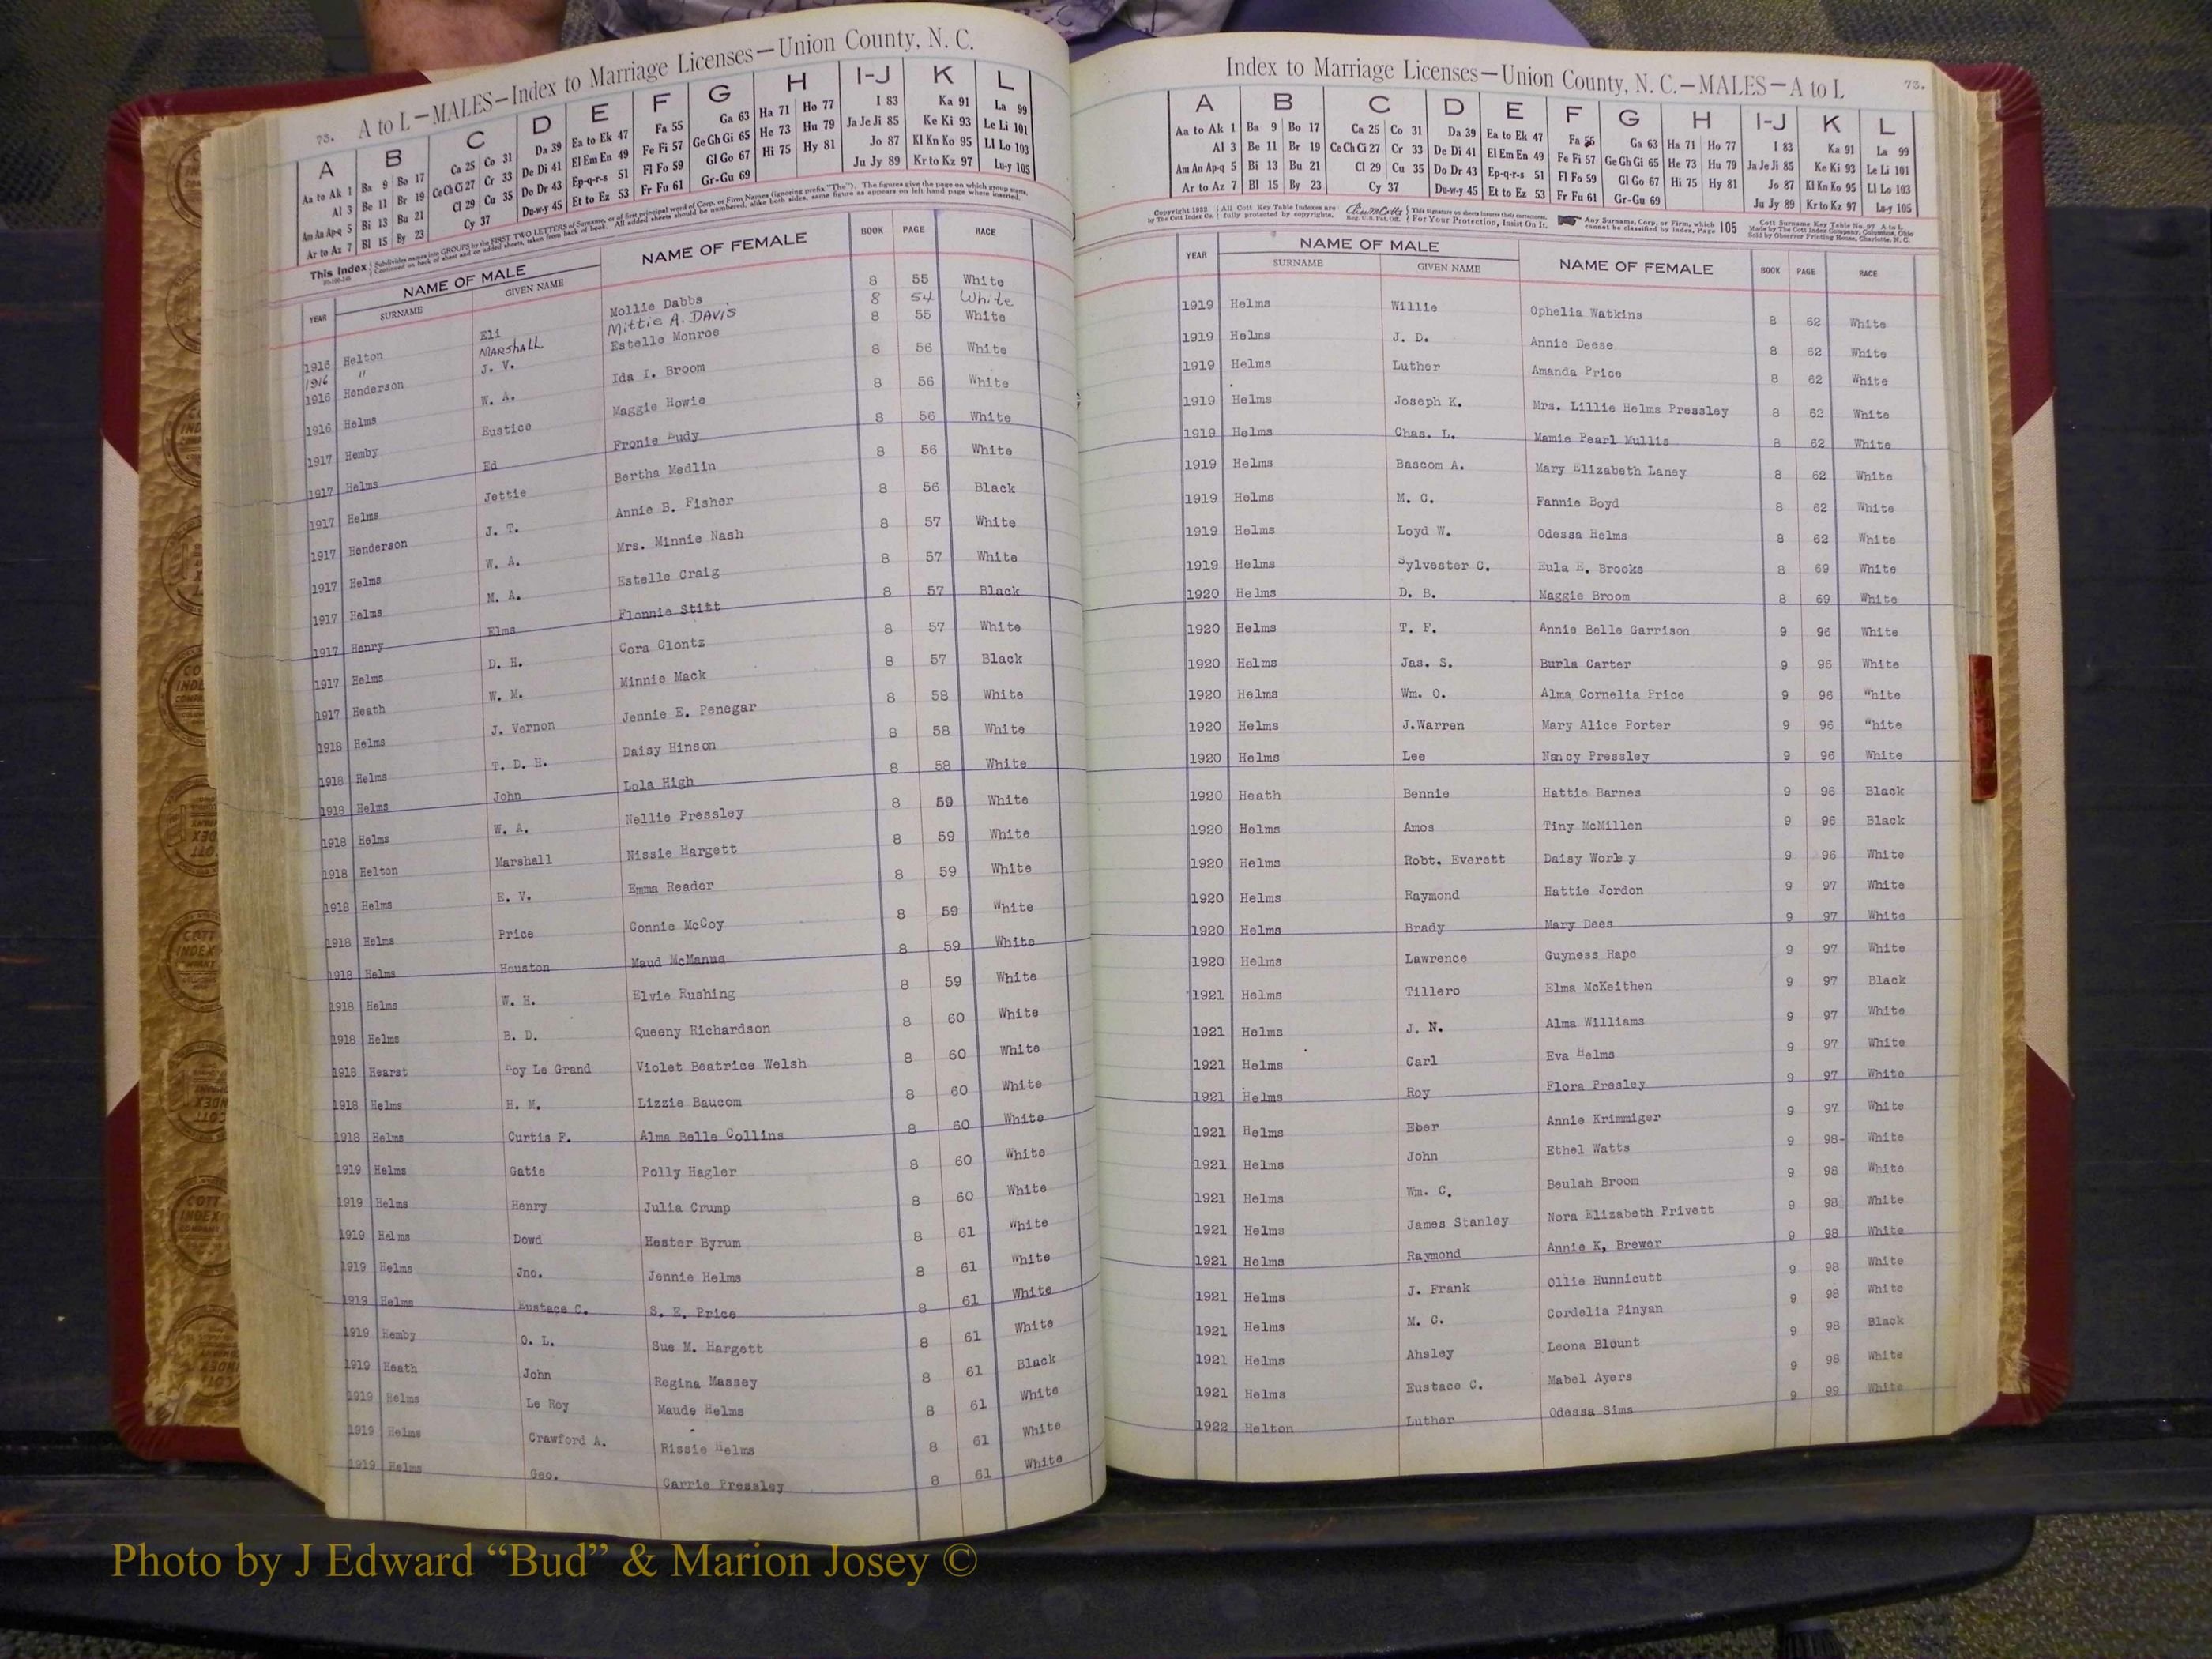 73. A to L—MALES—Index to Marriage Licenses—Union County, N. C.
A B C D E F G H I-J K L
Aa to Ak 1 Ba 9 Bo 17 Ca 25 Co 31 Da 39 Ea to Ek 47 Fa 55 Ga 63 Ha 71 Ho 77 I 83 Ka 91 La 99
Al 3 Be 11 Br 19 Ce Ch Ci 27 Cr 33 De Di 41 El Em En 49 Fe Fi 57 Ge Gh Gi 65 He 73 Hu 79 Ja Je Ji 85 Ke Ki 93 Le Li 101
Am An Ap-q 5 Bi 13 Bu 21 Cl 29 Cu 35 Do Dr 43 Ep-q-r-s 51 Fl Fo 59 Gl Go 67 Hi 75 Hy 81 Jo 87 Kl Kn Ko 95 Ll Lo 103
Ar to Az 7 Bl 15 By 23 Cy 37 Du-w-y 45 Et to Ez 53 Fr Fu 61 Gr-Gu 69 Ju Jy 89 Kr to Kz 97 Lu-y 105
This Index Subdivides names into GROUPS by the FIRST TWO LETTERS of Surname, or of first principal word of Corp. or Firm Names (ignoring prefix "The"). The figures give the page on which group starts.
Continued on back of sheet and on added sheets, taken from back of book. All added sheets should be numbered, alike both sides, same figure as appears on left hand page where inserted.
YEAR NAME OF MALE SURNAME GIVEN NAME NAME OF FEMALE BOOK PAGE RACE
1916 Helton Eli Mollie Dabbs 8 55 White
1916 " MARSHALL Mittie A. DAVIS 8 54 White
1916 Henderson J. V. Estelle Monroe 8 55 White
1916 Helms W. A. Ida I. Broom 8 56 White
1917 Hemby Eustice Maggie Howie 8 56 White
1917 Helms Ed Fronie Eudy 8 56 White
1917 Helms Jettie Bertha Medlin 8 56 White
1917 Henderson J. T. Annie B. Fisher 8 56 Black
1917 Helms W. A. Mrs. Minnie Nash 8 57 White
1917 Helms M. A. Estelle Craig 8 57 White
1917 Henry Elms Flonnie Stitt 8 57 Black
1917 Helms D. H. Cora Clontz 8 57 White
1917 Heath W. M. Minnie Mack 8 57 Black
1918 Helms J. Vernon Jennie E. Penegar 8 58 White
1918 Helms T. D. H. Daisy Hinson 8 58 White
1918 Helms John Lola High 8 58 White
1918 Helms W. A. Nellie Pressley 8 59 White
1918 Helton Marshall Nissie Hargett 8 59 White
1918 Helms E. V. Emma Reader 8 59 White
1918 Helms Price Connie McCoy 8 59 White
1918 Helms Houston Maud McManus 8 59 White
1918 Helms W. H. Elvie Rushing 8 59 White
1918 Helms B. D. Queeny Richardson 8 60 White
1918 Hearst Roy Le Grand Violet Beatrice Welsh 8 60 White
1918 Helms H. M. Lizzie Baucom 8 60 White
1918 Helms Curtis F. Alma Belle Collins 8 60 White
1919 Helms Gatie Polly Hagler 8 60 White
1919 Helms Henry Julia Crump 8 60 White
1919 Helms Dowd Hester Byrum 8 61 White
1919 Helms Jno. Jennie Helms 8 61 White
1919 Helms Eustace C. S. E. Price 8 61 White
1919 Hemby O. L. Sue M. Hargett 8 61 White
1919 Heath John Regina Massey 8 61 Black
1919 Helms Le Roy Maude Helms 8 61 White
1919 Helms Crawford A. Rissie Helms 8 61 White
1919 Helms Geo. Carrie Pressley 8 61 White
Index to Marriage Licenses—Union County, N. C.—MALES—A to L 73.
A B C D E F G H I-J K L
Aa to Ak 1 Ba 9 Bo 17 Ca 25 Co 31 Da 39 Ea to Ek 47 Fa 55 Ga 63 Ha 71 Ho 77 I 83 Ka 91 La 99
Al 3 Be 11 Br 19 Ce Ch Ci 27 Cr 33 De Di 41 El Em En 49 Fe Fi 57 Ge Gh Gi 65 He 73 Hu 79 Ja Je Ji 85 Ke Ki 93 Le Li 101
Am An Ap-q 5 Bi 13 Bu 21 Cl 29 Cu 35 Do Dr 43 Ep-q-r-s 51 Fl Fo 59 Gl Go 67 Hi 75 Hy 81 Jo 87 Kl Kn Ko 95 Ll Lo 103
Ar to Az 7 Bl 15 By 23 Cy 37 Du-w-y 45 Et to Ez 53 Fr Fu 61 Gr-Gu 69 Ju Jy 89 Kr to Kz 97 Lu-y 105
Copyright 1932 by The Cott Index Co. All Cott Key Table Indexes are fully protected by copyrights. Reg. U.S. Pat. Off. This Signature on sheets insures their correctness. For Your Protection, Insist On It. Any Surname, Corp. or Firm, which cannot be classified by Index, Page 105 Cott Surname Key Table No. 97 A to L Made by The Cott Index Company, Columbus, Ohio Sold by Observer Printing House, Charlotte, N. C.
YEAR NAME OF MALE SURNAME GIVEN NAME NAME OF FEMALE BOOK PAGE RACE
1919 Helms Willie Ophelia Watkins 8 62 White
1919 Helms J. D. Annie Deese 8 62 White
1919 Helms Luther Amanda Price 8 62 White
1919 Helms Joseph K. Mrs. Lillie Helms Pressley 8 62 White
1919 Helms Chas. L. Mamie Pearl Mullis 8 62 White
1919 Helms Bascom A. Mary Elizabeth Laney 8 62 White
1919 Helms M. C. Fannie Boyd 8 62 White
1919 Helms Loyd W. Odessa Helms 8 62 White
1919 Helms Sylvester C. Eula E. Brooks 8 69 White
1920 Helms D. B. Maggie Broom 8 69 White
1920 Helms T. F. Annie Belle Garrison 9 96 White
1920 Helms Jas. S. Burla Carter 9 96 White
1920 Helms Wm. O. Alma Cornelia Price 9 96 White
1920 Helms J.Warren Mary Alice Porter 9 96 White
1920 Helms Lee Nancy Pressley 9 96 White
1920 Heath Bennie Hattie Barnes 9 96 Black
1920 Helms Amos Tiny McMillen 9 96 Black
1920 Helms Robt. Everett Daisy 9 96 White
1920 Helms Raymond Hattie Jordon 9 97 White
1920 Helms Brady Mary Dees 9 97 White
1920 Helms Lawrence Guyness Rape 9 97 White
1921 Helms Tillero Elma McKeithen 9 97 Black
1921 Helms J. N. Alma Williams 9 97 White
1921 Helms Carl Eva Helms 9 97 White
1921 Helms Roy Flora Presley 9 97 White
1921 Helms Eber Annie Krimmiger 9 97 White
1921 Helms John Ethel Watts 9 98- White
1921 Helms Wm. C. Beulah Broom 9 98 White
1921 Helms James Stanley Nora Elizabeth Privett 9 98 White
1921 Helms Raymond Annie K, Brewer 9 98 White
1921 Helms J. Frank Ollie Hunnicutt 9 98 White
1921 Helms M. C. Cordelia Pinyan 9 98 White
1921 Helms Ahsley Leona Blount 9 98 Black
1921 Helms Eustace C. Mabel Ayers 9 98 White
1922 Helton Luther Odessa Sims 9 99 White
Photo by J Edward “Bud” & Marion Josey ©